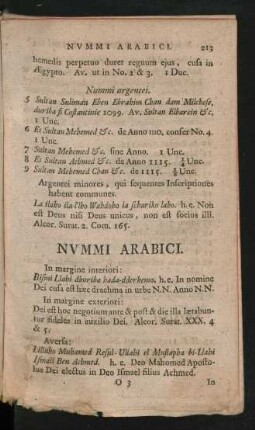 NVMMI ARABICI. 213
hemedis perpetuo duret regnum ejus, cusa in
Ægypto. Av. ut in No. 2 & 3. 1 Duc.
Nummi argentei.
5 Sultan Suliman Eben Ebrahim Chan dam Mulchose,
duriba fi Costantinie 1099. Av. Sultan Elbarein &c.
1 Unc.
6 Et Sultan Mehemed &c. de Anno 1110. confer No. 4.
1 Unc.
7 Sultan Mehemed &c. sine Anno. 1 Unc.
8 Et Sultan Achmed &c. de Anno 1115. Unc.
9 Sultan Mehemed Chan &c. de 1115. Unc.
Argentei minores, qui sequentes Inscriptiones
habent communes.
La ilaho illa'llho Wahdoho la schariko laho. h.e. Non
est Deus nisi Deus unicus, non est socius illi.
Alcor. Surat. 2. Com. 165.
NVMMI ARABICI.
In margine interiori:
Bismi Llahi dhoriba hada-dderhemo. h. e. In nomine
Dei cusa est hæc drachma in urbe N.N. Anno N.N.
In margine exteriori:
Dei est hoc negotium ante & post & die illa lætabun-
tur fideles in auxilio Dei. Alcor. Surat. XXX. 4
& 5.
Aversa:
Lilluho Muhamed Resul-Ullahi el Mustapha bi-Llahi
Ismail Ben Achmed. h. e. Deo Mahomed Aposto-
lus Dei electus in Deo Ismael filius Achmed.
O 3 In